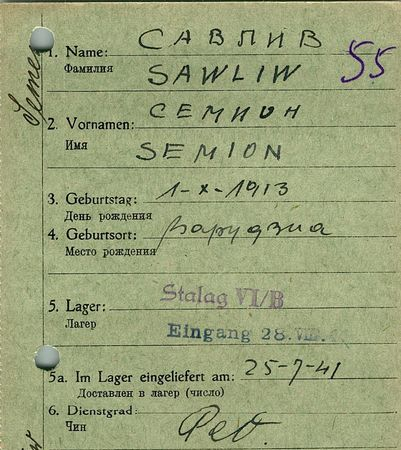 САВЛИВ
1. Name:
Фамилия
SAWLIW
55
СЕМИОН
2. Vornamen:
Имя
SEMION
3. Geburtstag: 1-X-1913
День рождения
4. Geburtsort:
Место рождения
5. Lager: Stalag VI/B
Лагер
Eingang 28. VIII.
5a. Im Lager eingeliefert am: 25-7-41
Доставлен в лагер (число)
6. Dienstgrad:
Чин